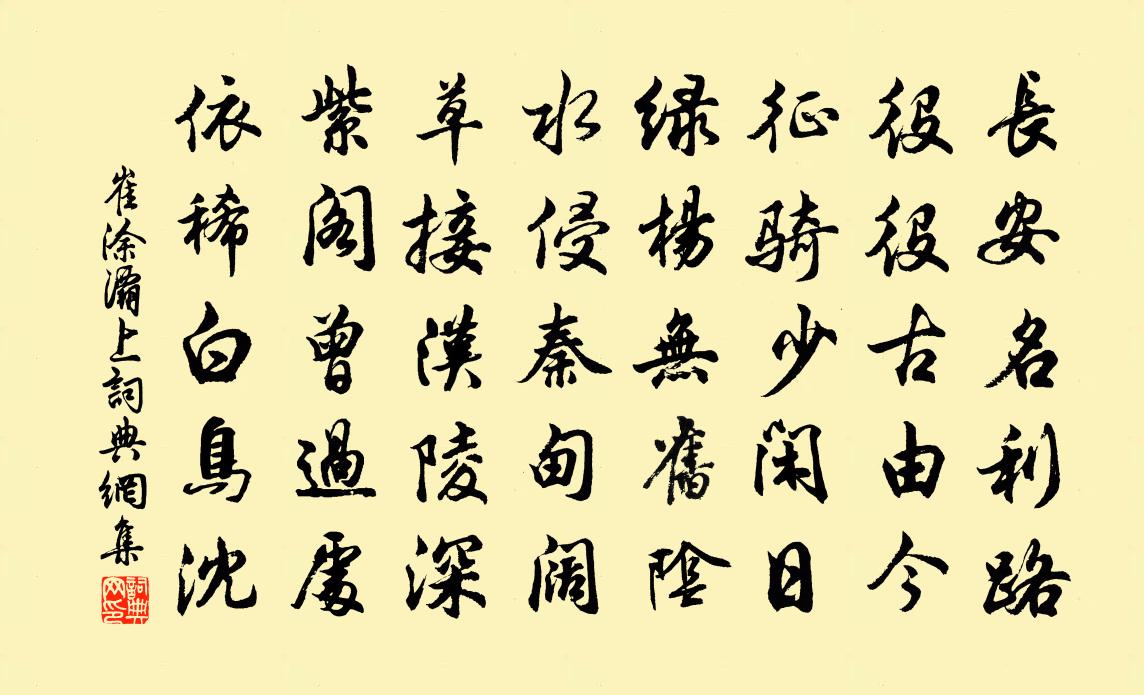 長安名利路
役役古由今
征騎少閑日
绿楊無舊陰
水侵秦甸闊
草接漢陵深
紫閣曾過處
依稀白鳥沈
崔涂灞上詞典網集
詞典網印